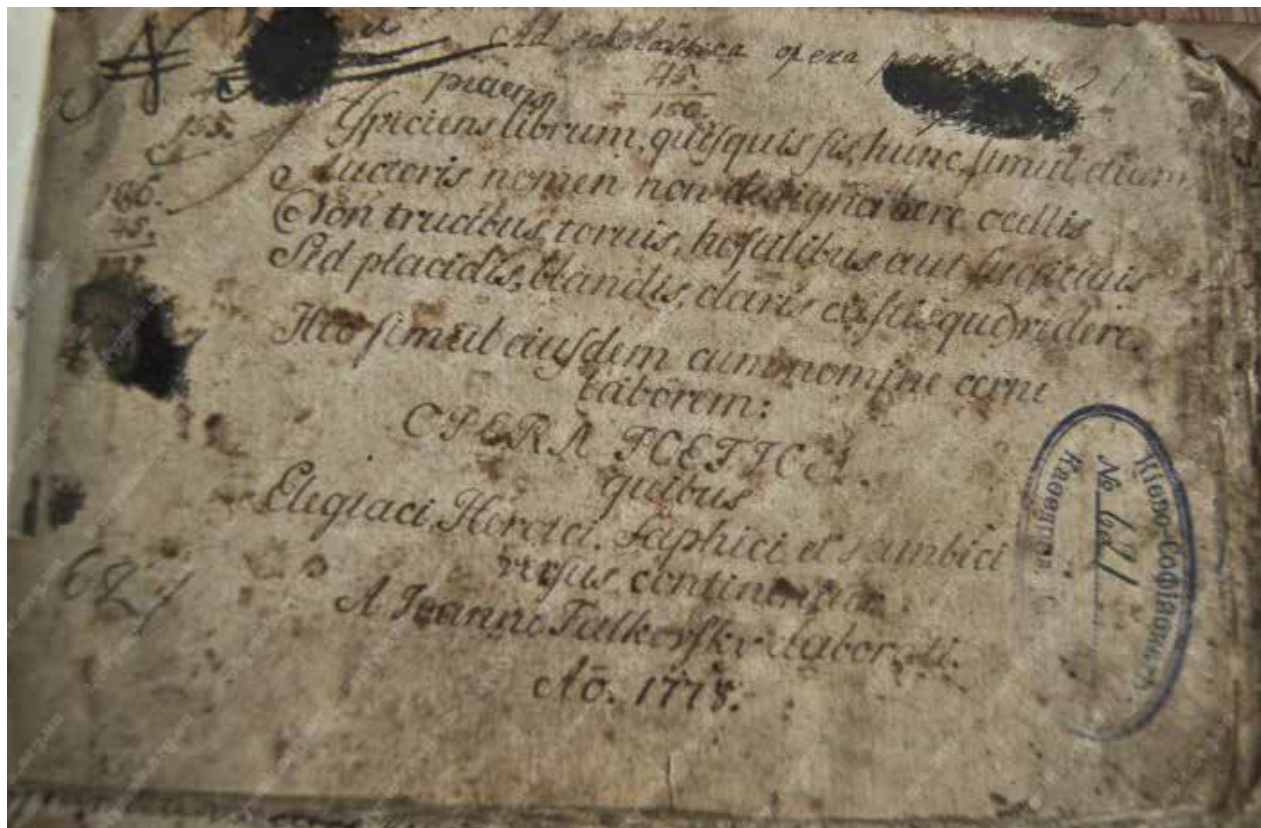 Ad scholastica opera
45.
150.
praens
155.
Aspiciens librum, quisquis sis, hunc, simul etiam
Auctoris nomen non dedignabere ocellis
166.
45.
Non trucibus, toruis, hostilibus aut
Sed placidis, blandis, claris castisque videre.
Hic simul eiusdem cum nomine cerne
laborem:
OPERA POETICA
quibus
Elegiaci Heroici, Saphici et Iambici
versus continentur
A Ioanne Falkofsky elaborati.
Aõ. 1778.
621
Кіево-Софійскаго
№ 621